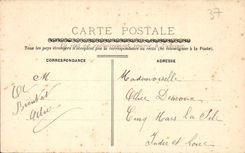 37
CARTE POSTALE
Tous les pays étrangers n'acceptent pas la correspondance au recto (Se renseigner à la Poste)
CORRESPONDANCE
ADRESSE
M
Mademoiselle
Bientôt
Cinq Mars La Pile
Indre et Loire